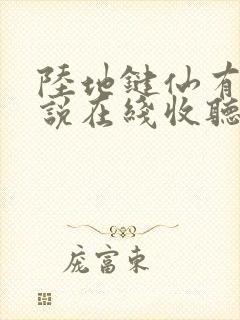 陸地鍵仙有
説在綫收聽
庞富東